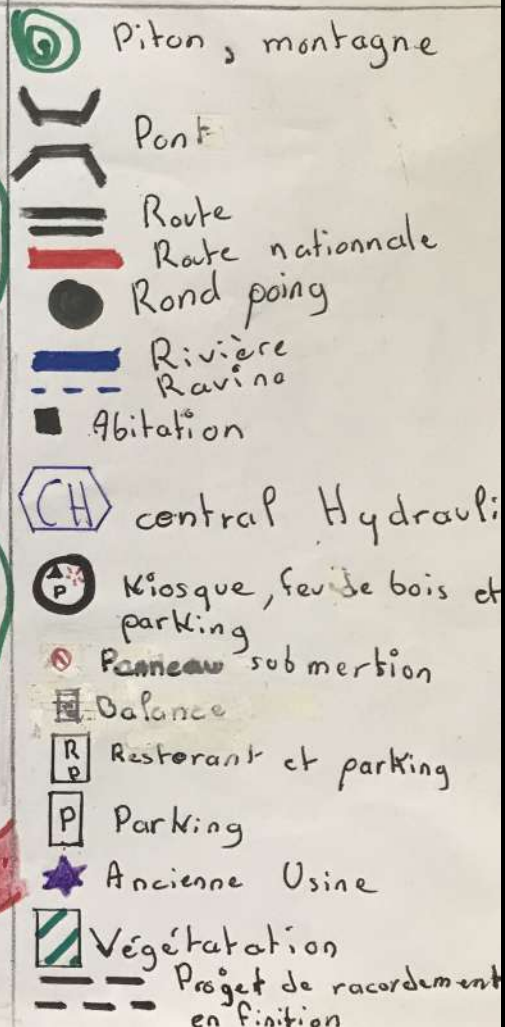 Piton, montagne
Pont
Route
Route nationnale
Rond poing
Rivière
Ravine
Abitation
CH central Hydrauli
P Kiosque, feu de bois et
parking
Panneau submertion
Balance
R P Restorant et parking
P Parking
Ancienne Usine
Végétatation
Projet de racordement
en finition